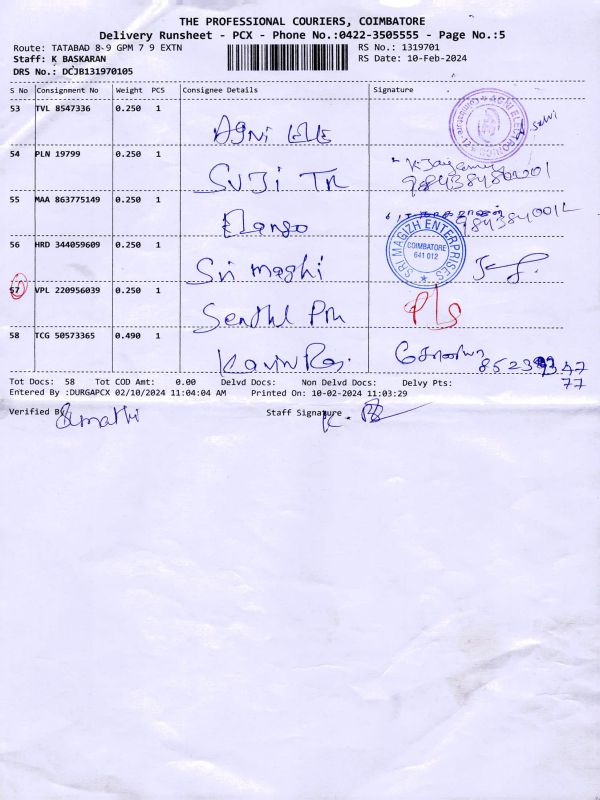 THE PROFESSIONAL COURIERS, COIMBATORE
Delivery Runsheet - PCX - Phone No.:0422-3505555 - Page No.:5
Route: TATABAD 8-9 GPM 7 9 EXTN
RS No.: 1319701
Staff: K BASKARAN
RS Date: 10-Feb-2024
DRS No.: DCJB131970105
S No Consignment No Weight PCS Consignee Details Signature
53 TVL 8547336 0.250 1 Agni ELE
54 PLN 19799 0.250 1 SUJI TR
55 MAA 863775149 0.250 1 Elango
56 HRD 344059609 0.250 1 Sri maghi
SRI MAGIZH ENTERPRISES
COIMBATORE
641 012
57 VPL 220956039 0.250 1 Senthil Pm P/S
58 TCG 50573365 0.490 1 Kavin Raj
77
Tot Docs: 58 Tot COD Amt: 0.00 Delvd Docs: Non Delvd Docs: Delvy Pts:
Entered By :DURGAPCX 02/10/2024 11:04:04 AM Printed On: 10-02-2024 11:03:29
Verified By Sumathi Staff Signature